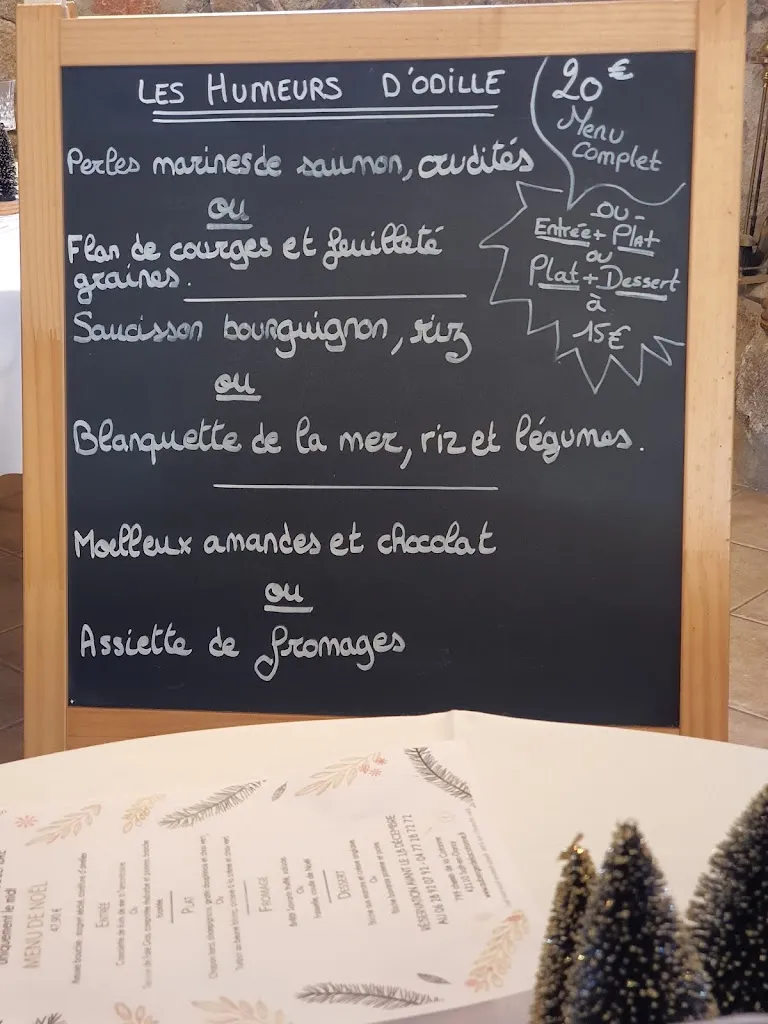 LES HUMEURS D'ODILLE
Perles marines de saumon, crudités
ou
Flan de courges et feuilleté
graines.
Saucisson bourguignon, riz
ou
Blanquette de la mer, riz et légumes.
Moelleux amandes et chocolat
ou
Assiette de fromages
20€
Menu
complet
-OU-
Entrée + Plat
ou
Plat + Dessert
à
15€
uniquement le midi
MENU DE NOËL
47,90 €
ENTRÉE
Ou
PLAT
Ou
FROMAGE
Ou
DESSERT
Ou
RÉSERVATION AVANT LE 18 DÉCEMBRE
AU 06 28 92 07 92 - 04 77 18 72 72